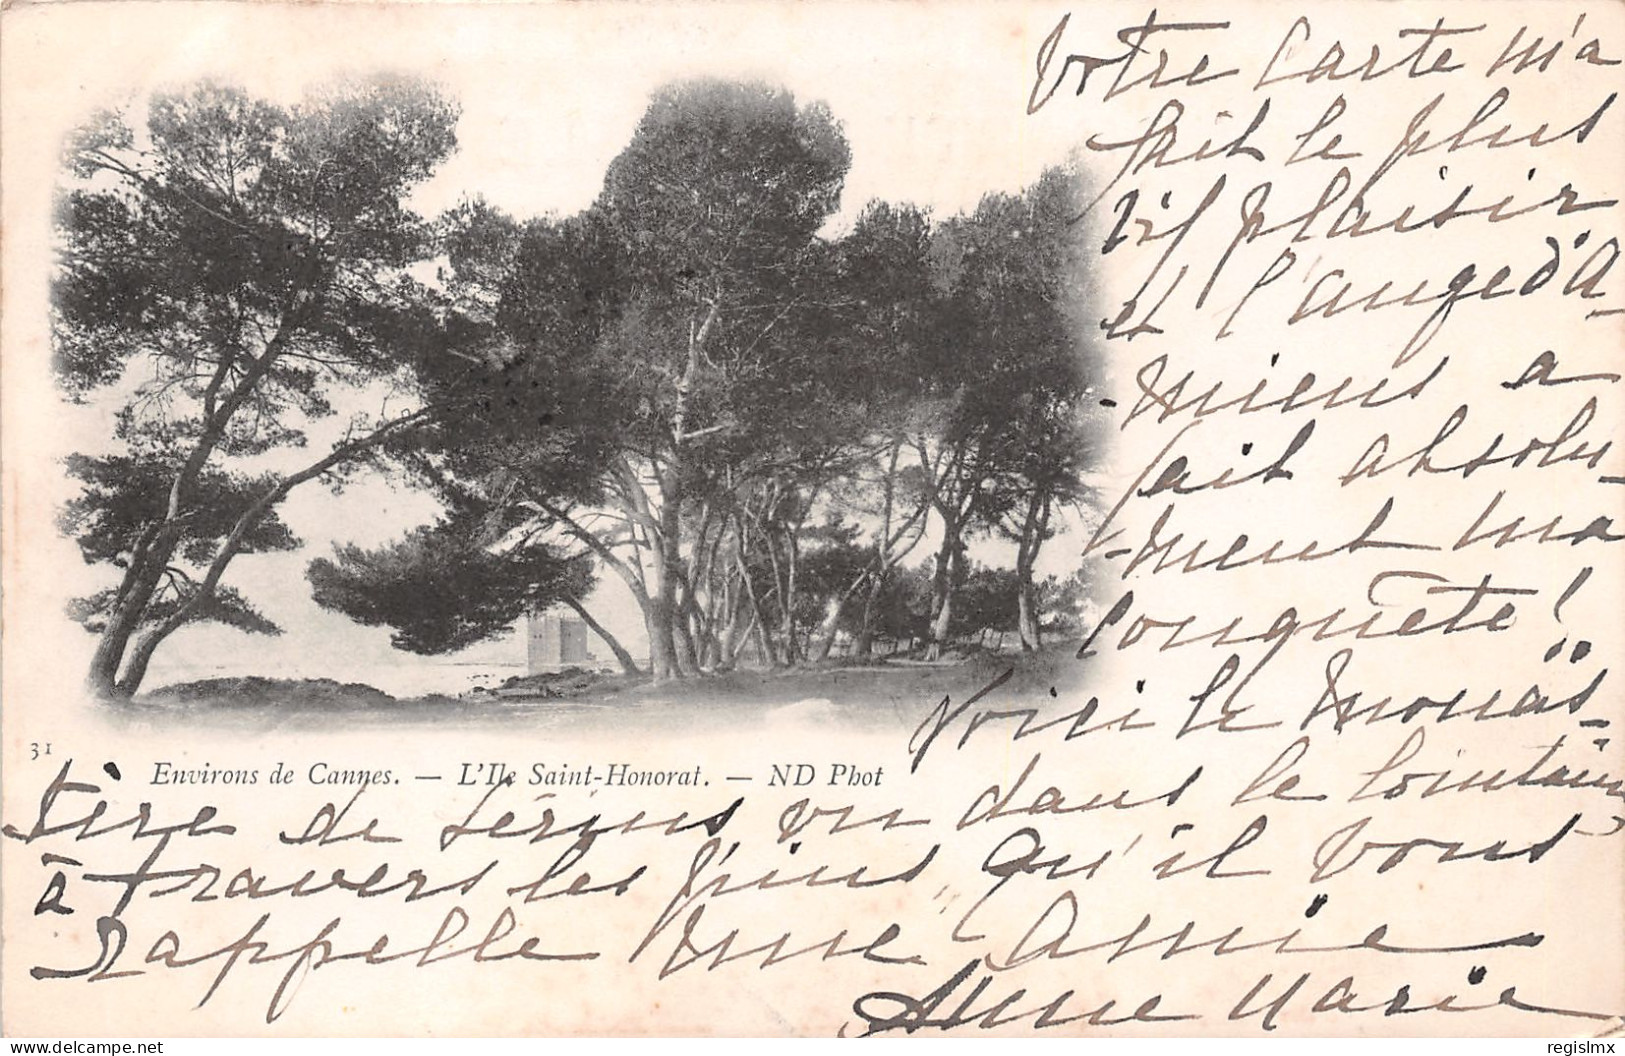 Votre Carte m'a
fait le plus
vif plaisir
et l'ange d'A-
-miens a
fait absolu-
-ment ma
conquête!..
Voici le monas-
31
Environs de Cannes. — L'Ile Saint-Honorat. — ND Phot
tère de Lérins vu dans le lointain
à travers les pins, Qu'il vous
Rappelle une Amie
Anne Marie
regislmx
delcampe.net